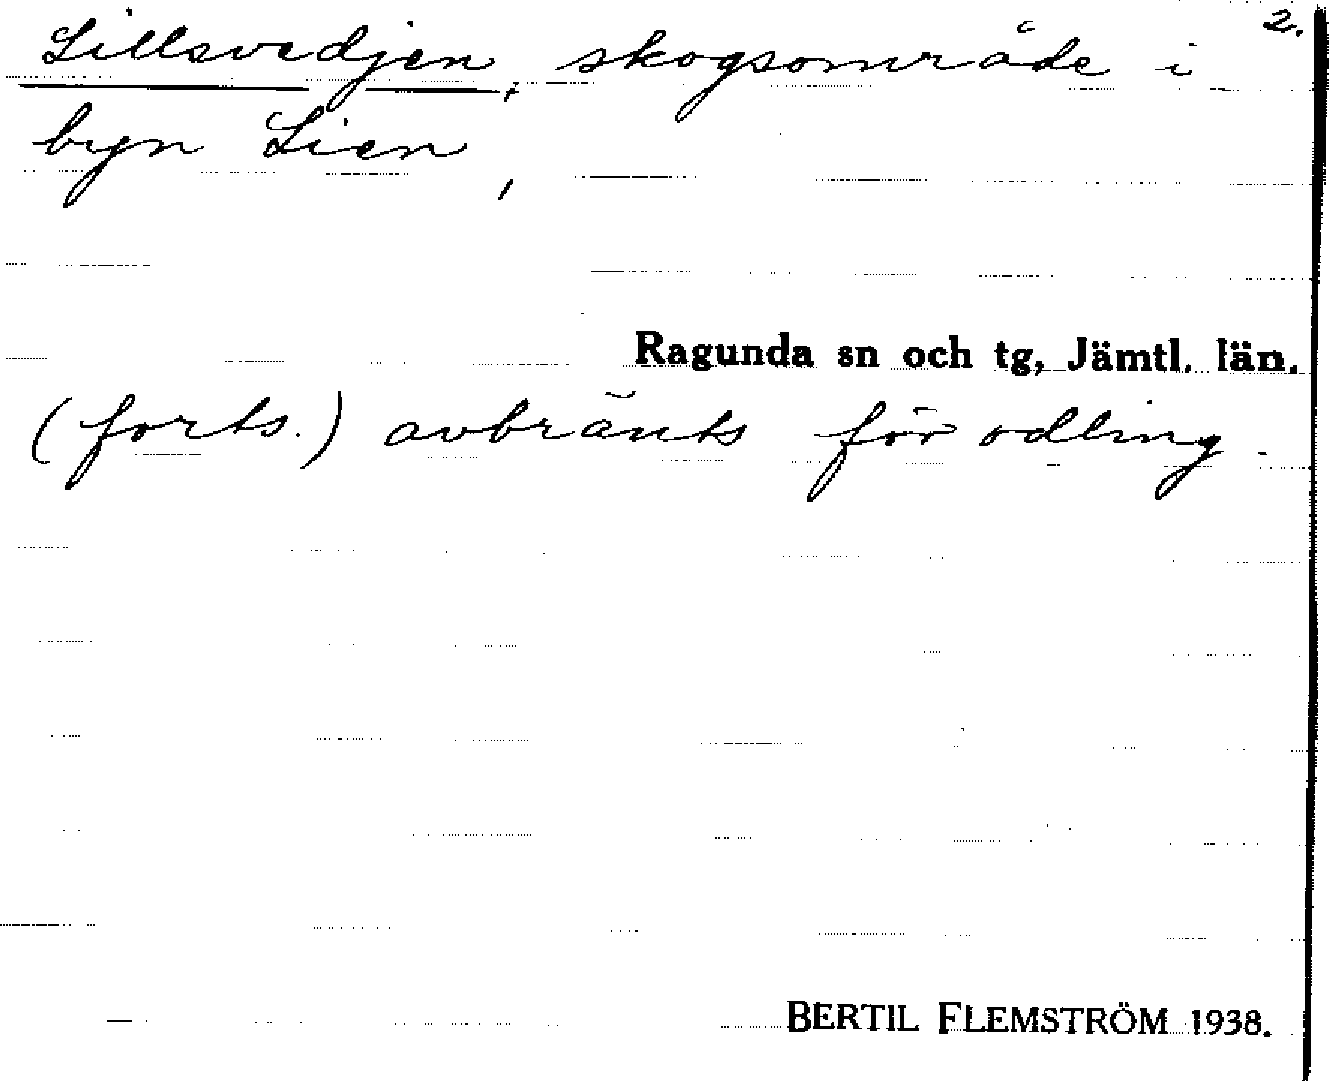 2.
Lillsvedjen, skogsområde i
byn Lien,
Ragunda sn och tg, Jämtl. län.
(forts.) avbränts för odling.
BERTIL FLEMSTRÖM 1938.